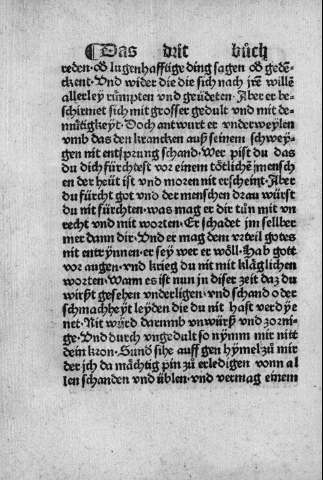 ¶Das drit bůch
reden· oð lugenhafftige ding sagen oð gedē-
ckent· Vnd wider die die sich nach jrē willē
allerley rümpten vnd grüdeten· Aber er be-
schirmet sich mit grosser gedult vnd mit de-
mütigkeyt· Doch antwurt er vnderweylen
vmb das den krancken auß seinem schwey-
gen nit entsprung schand· Wer pist du das
du dich fürchtest vor einem tötlichē mensch
en der heüt ist vnd moren nit erscheint· Aber
du fürcht got vnd der menschen drau würst
du nit fürchten· was mag er dir tůn mit vn
recht vnd mit worten· Er schadet jm selber
mer dann dir· Vnd er mag dem vrteil gotes
nit entrynnen· er sey wer er wöll· Hab gott
vor augen· vnd krieg du nit mit kläglichen
worten· Wann es ist nun in diser zeit daz du
wirst gesehen vnderligen· vnd schand oder
schmachheyt leyden die du nit hast verdye
net· Nit würd darumb vnwürß vnd zorni-
ge· Vnd durch vngedult so nymm mir nitt
dein kron· Sund sihe auff gen hymel zů mir
der jch da mächtig pin zů erledigen vonn al
len schanden vnd üblen· vnd vermag einem